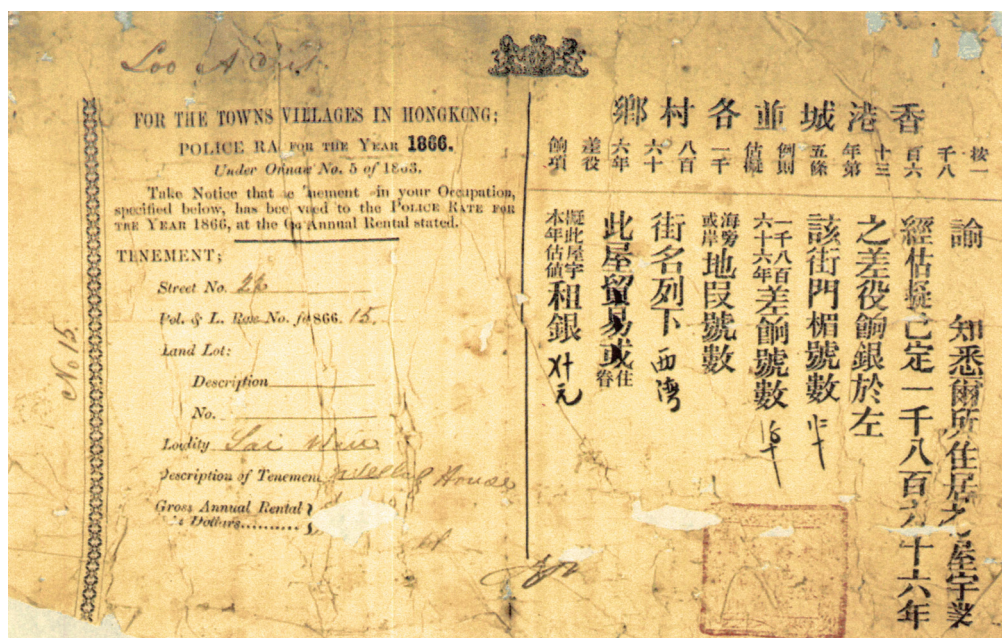 Loo A
FOR THE TOWNS VILLAGES IN HONGKONG;
POLICE RA FOR THE YEAR 1866.
Under No. 5 of 1863.
Take Notice that Tenement in your Occupation,
specified below, has bee to the POLICE RATE FOR
THE YEAR 1866, at the Annual Rental stated.
TENEMENT;
Street No. 22
Pol. & L. Rate No. for 1866. 15.
Land Lot:
Description
No.
Locality Sai Wan
Description of Tenement Dwelling House
Gross Annual Rental
in Dollars
No 15.
香港城並各村鄉
按一千八百六十三年第五條例則估擬一千八百六十六年差役餉項
諭 知悉爾所住居之屋宇業
經估擬已定一千八百六十六年
之差役餉銀於左
該街門楣號數
一千八百六十六年差餉號數
海旁或岸地段號數
街名列下 西灣
此屋貿易或住眷
擬此屋宇本年估值租銀 元